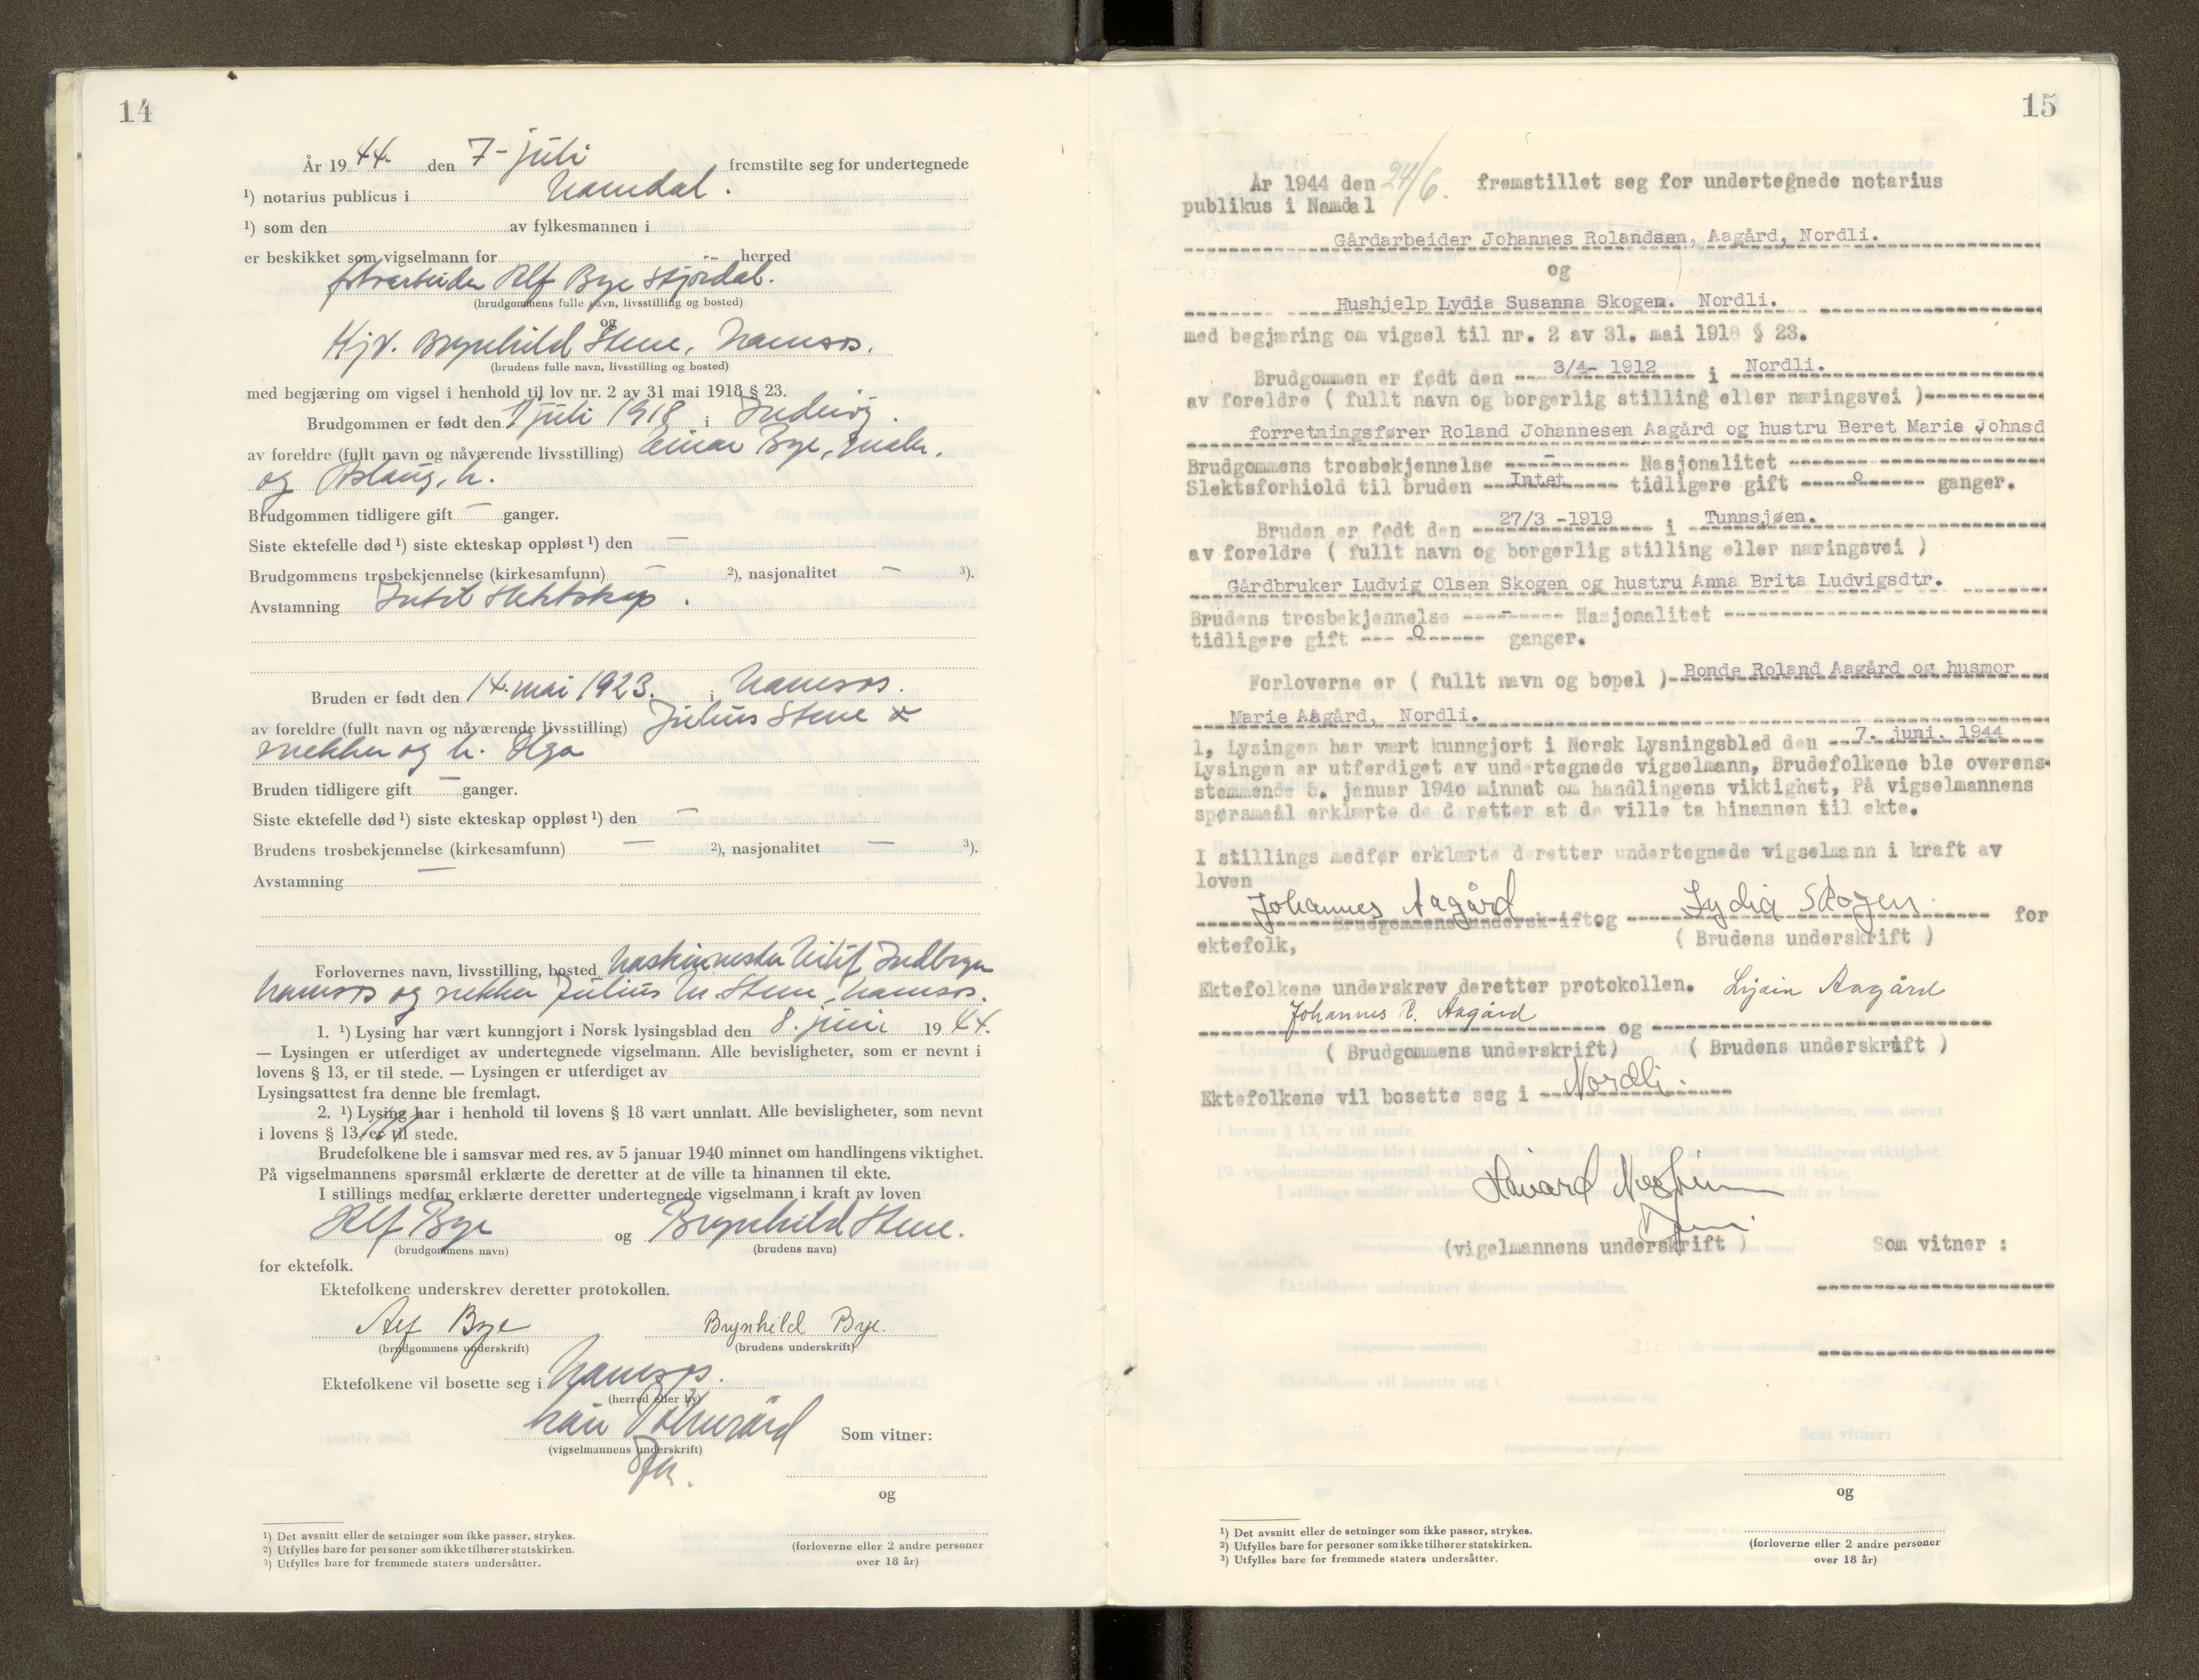 14
År 1944. den 7- juli fremstilte seg for undertegnede
¹) notarius publicus i Namdal.
¹) som den av fylkesmannen i
er beskikket som vigselmann for -"- herred
Alf Bye Stjørdal.
(brudgommens fulle navn, livsstilling og bosted)
og
Hjv. Brynhild Stene, Namsos.
(brudens fulle navn, livsstilling og bosted)
med begjæring om vigsel i henhold til lov nr. 2 av 31 mai 1918 § 23.
Brudgommen er født den juli 1918 i Inderøy.
av foreldre (fullt navn og nåværende livsstilling) Einar Bye,
og Aslaug, h.
Brudgommen tidligere gift — ganger.
Siste ektefelle død ¹) siste ekteskap oppløst ¹) den —
Brudgommens trosbekjennelse (kirkesamfunn) — ²), nasjonalitet — ³).
Avstamning Intet slektskap.
Bruden er født den 14. mai 1923. i Namsos.
av foreldre (fullt navn og nåværende livsstilling) Julius Stene
snekker og h. Olga
Bruden tidligere gift — ganger.
Siste ektefelle død ¹) siste ekteskap oppløst ¹) den —
Brudens trosbekjennelse (kirkesamfunn) — ²), nasjonalitet — ³).
Avstamning —
Forlovernes navn, livsstilling, bosted
Namsos og snekker Julius M. Stene, Namsos.
1. ¹) Lysing har vært kunngjort i Norsk lysingsblad den 8. juni 1944.
— Lysingen er utferdiget av undertegnede vigselmann. Alle bevisligheter, som er nevnt i
lovens § 13, er til stede. — Lysingen er utferdiget av
Lysingsattest fra denne ble fremlagt.
2. ¹) Lysing har i henhold til lovens § 18 vært unnlatt. Alle bevisligheter, som nevnt
i lovens § 13, er til stede.
Brudefolkene ble i samsvar med res. av 5 januar 1940 minnet om handlingens viktighet.
På vigselmannens spørsmål erklærte de deretter at de ville ta hinannen til ekte.
I stillings medfør erklærte deretter undertegnede vigselmann i kraft av loven
Alf Bye og Brynhild Stene.
(brudgommens navn) (brudens navn)
for ektefolk.
Ektefolkene underskrev deretter protokollen.
Alf Bye Brynhild Bye.
(brudgommens underskrift) (brudens underskrift)
Ektefolkene vil bosette seg i Namsos.
(herred eller by)
Som vitner:
(vigselmannens underskrift)
og
¹) Det avsnitt eller de setninger som ikke passer, strykes.
²) Utfylles bare for personer som ikke tilhører statskirken.
³) Utfylles bare for fremmede staters undersåtter.
(forloverne eller 2 andre personer
over 18 år)
15
År 1944 den 24/6. fremstillet seg for undertegnede notarius
publikus i Namdal
Gårdarbeider Johannes Rolandsen, Aagård, Nordli.
og
Hushjelp Lydia Susanna Skogen. Nordli.
med begjæring om vigsel til nr. 2 av 31. mai 1918 § 23.
Brudgommen er født den 3/4- 1912 i Nordli.
av foreldre ( fullt navn og borgerlig stilling eller næringsvei )
forretningsfører Roland Johannesen Aagård og hustru Beret Marie Johnsd
Brudgommens trosbekjennelse - Nasjonalitet
Slektsforhiold til bruden Intet tidligere gift o ganger.
Bruden er født den 27/3 -1919 i Tunnsjøen.
av foreldre ( fullt navn og borgerlig stilling eller næringsvei )
Gårdbruker Ludvig Olsen Skogen og hustru Anna Brita Ludvigsdtr.
Brudens trosbekjennelse - Nasjomalitet
tidligere gift 0 ganger.
Forloverne er ( fullt navn og bopel ) Bonde Roland Aagård og husmor
Marie Aagård, Nordli.
1, Lysingen har vært kunngjort i Norsk Lysningsblad den 7. juni. 1944
Lysingen er utferdiget av undertegnede vigselmann, Brudefolkene ble overens-
stemmende 5. januar 1940 minnut om handlingens viktighet, På vigselmannens
spørsmaål erklærte de d retter at de ville ta hinannen til ekte.
I stillings medfør erklærte deretter undertegnede vigselmann i kraft av
loven
Johannes Aagård og Lydia Skogen. for
Brudgommens undersk-rift ( Brudens underskrift )
ektefolk,
Ektefolkene underskrev deretter protokollen. Aagård
Johannes R. Aagård og
( Brudgommens underskrift) ( Brudens underskrift )
Ektefolkene vil bosette seg i Nordli.
Håvard
(vigelmannens underskrift ) Som vitner :
og
¹) Det avsnitt eller de setninger som ikke passer, strykes.
²) Utfylles bare for personer som ikke tilhører statskirken.
³) Utfylles bare for fremmede staters undersåtter.
(forloverne eller 2 andre personer
over 18 år)